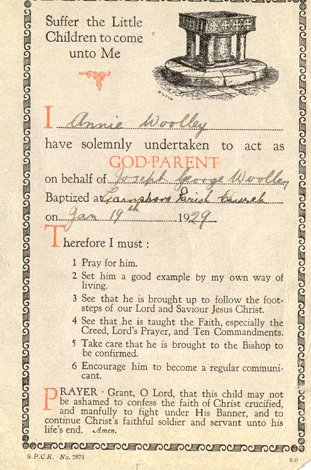 Suffer the Little
Children to come
unto Me
I Annie Woolley
have solemnly undertaken to act as
GOD-PARENT
on behalf of Joseph George Woolley
Baptized at Parish Church
on Jan 19th 1929
Therefore I must :
1 Pray for him.
2 Set him a good example by my own way of
living.
3 See that he is brought up to follow the foot-
steps of our Lord and Saviour Jesus Christ.
4 See that he is taught the Faith, especially the
Creed, Lord's Prayer, and Ten Commandments.
5 Take care that he is brought to the Bishop to
be confirmed.
6 Encourage him to become a regular communi-
cant.
PRAYER · Grant, O Lord, that this child may not
be ashamed to confess the faith of Christ crucified,
and manfully to fight under His Banner, and to
continue Christ's faithful soldier and servant unto his
life's end. Amen.
S.P.C.K. No. 2973